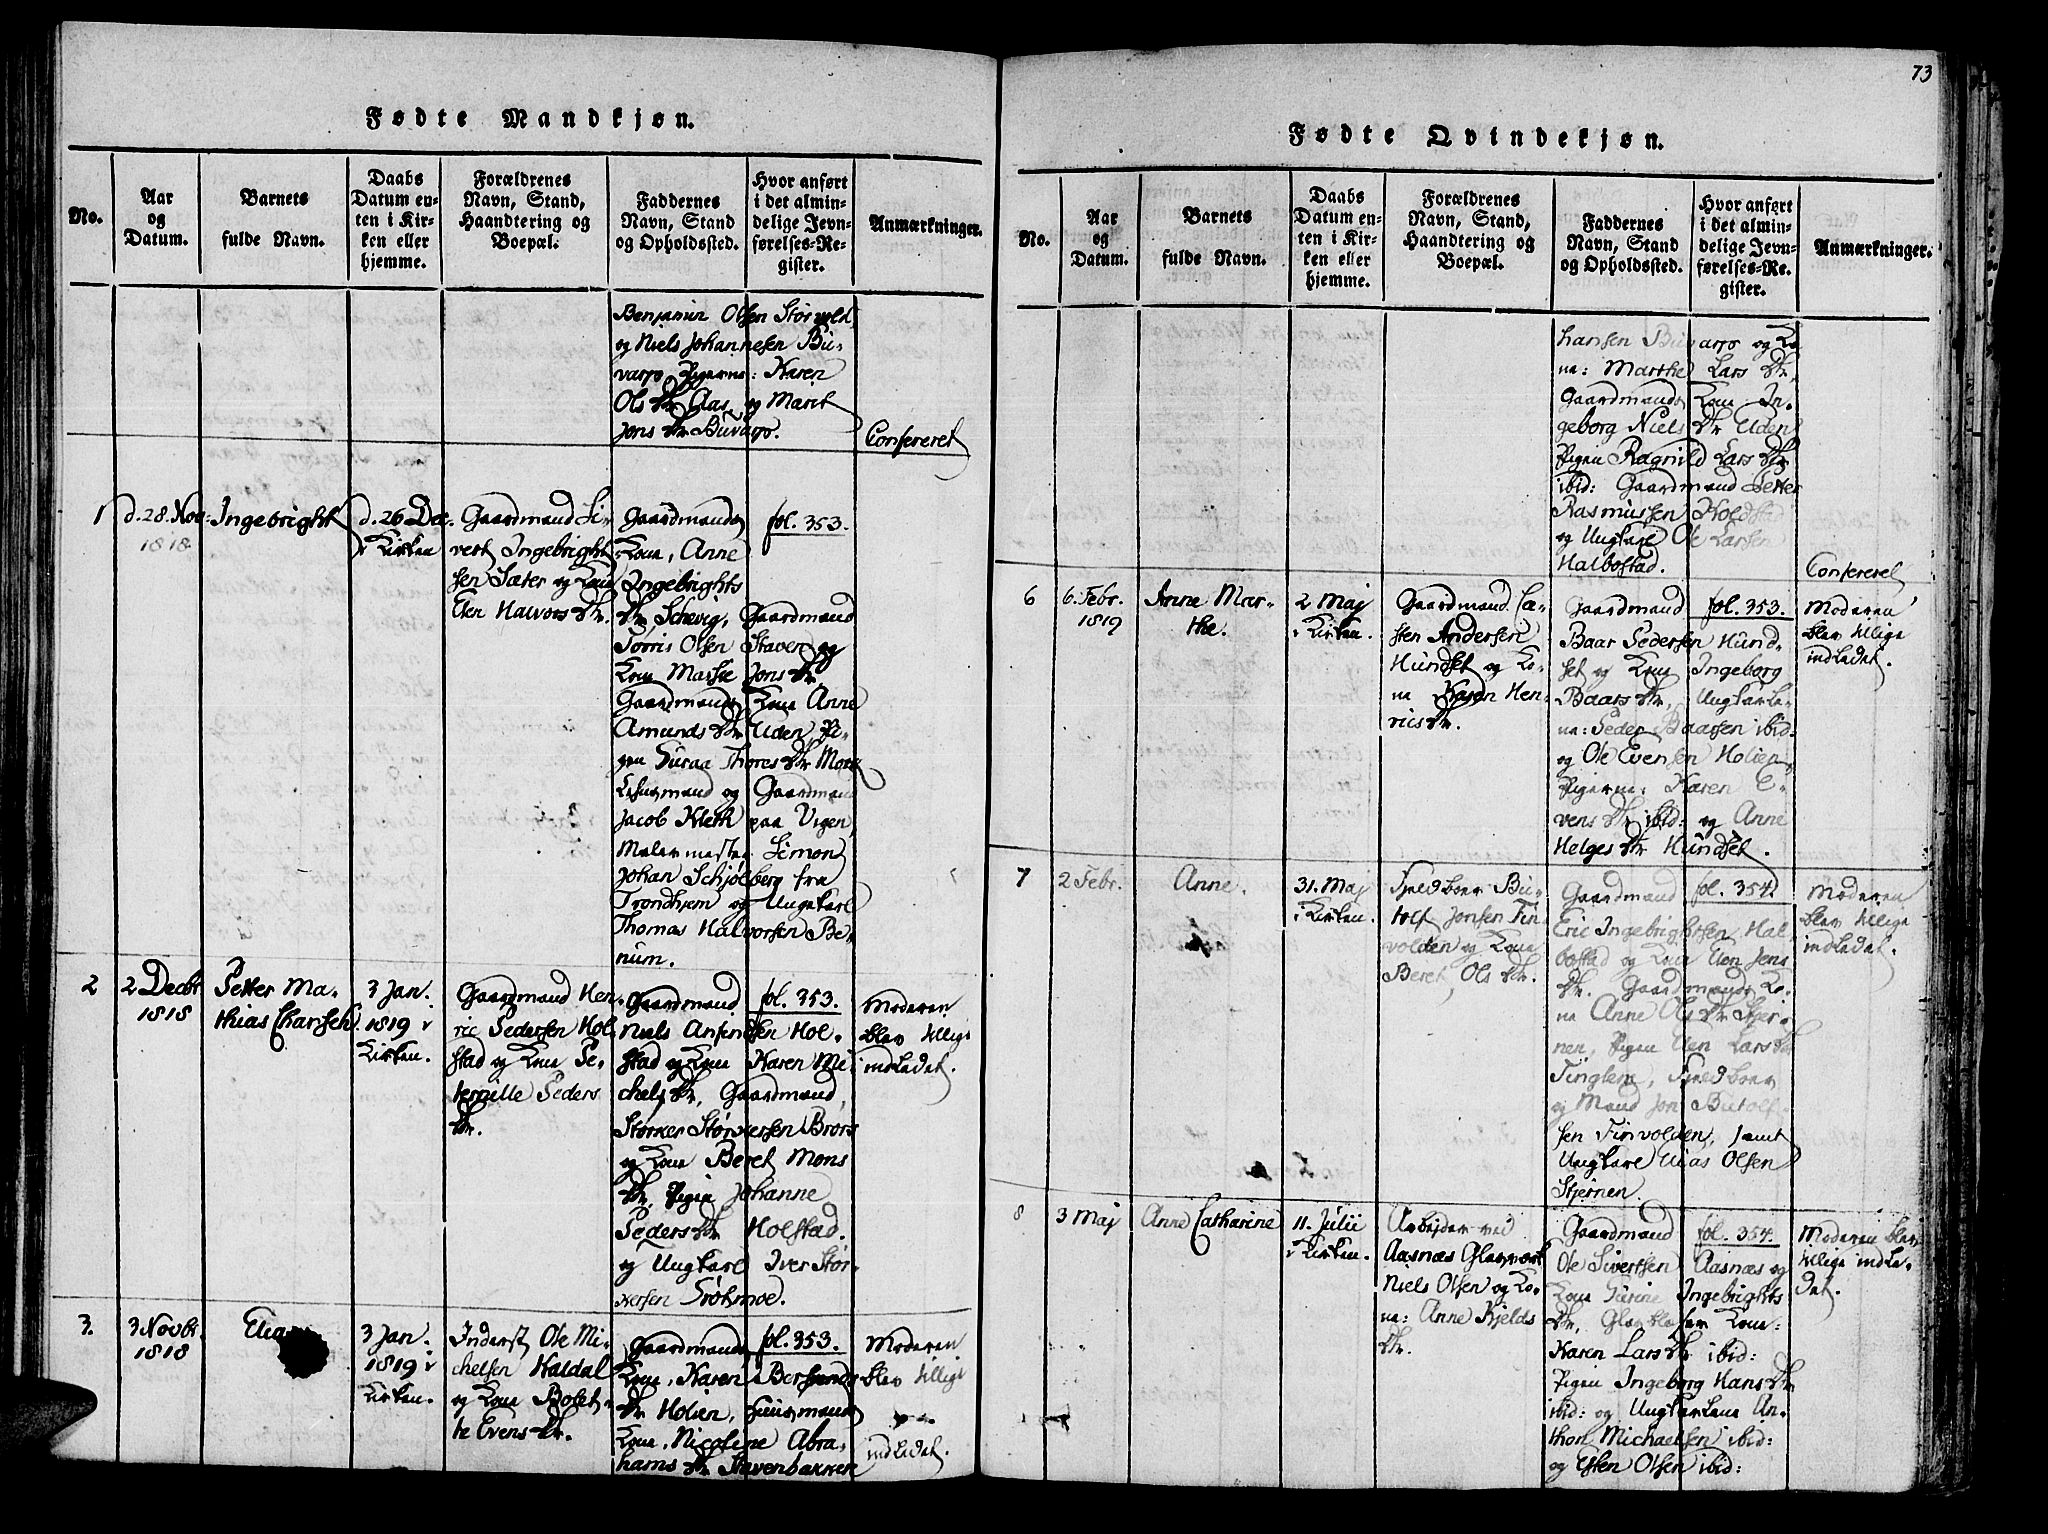 73
Fødte Mandkjøn.
No.
Aar
og
Datum.
Barnets
fulde Navn.
Daabs
Datum en-
ten i Kir-
ken eller
hjemme.
Forældrenes
Navn, Stand,
Haandtering og
Boepæl.
Faddernes
Navn, Stand
og Opholdssted.
Hvor anført
i det almin-
delige Jevn-
førelses-Re-
gister.
Anmærkninger.
Benjamin Olsen Störvold
og Niels Johannesen Bu-
varp Pigerne: Karen
Ols Dr Aas, og Marit
Jons Dr Buvarp.
Confereret
1
d. 28. Nov:
1818
Ingebright
d. 26 Dec.
i Kirken
Gaardmand Si-
vert Ingebright
sen Sæter og Kone
Elen Halvors Dr.
Gaardmands
Kone, Anne
Ingebrights
Dr Schevig, Gaardmand
Törris Olsen Staven og
Kone Marthe Jons Dr
Gaardmands Kone Anne
Amunds Dr Elden, Pi-
gen Guraa Thores Dr
mand og Gaardmand
Jacob Kleth paa Vigen,
Malermester Simon
Johan Schjølberg fra
Trondhjem og Ungkarl
Thomas Halvorsen Be-
num.
fol. 353.
2
2 Decbr
1818
Petter Ma-
thias Charsen
3 Jan.
1819 i
Kirken.
Gaardmand Hen-
ric Pedersen Hol
stad og Kone Pe-
ternille Peders
Dr.
Gaardmand
Niels Anfindsen Hol-
stad og Kone Karen Mi-
chels Dr, Gaardmand,
Storker Størkersen Brørs
og Kone Beret Mons
Dr, Pigen Johanne
Peders Dr Holstad.
og Ungkarl Iver Stör-
kersen Grötmoe.
fol. 353.
Moderen
blev tillige
indledet.
3.
3 Novbr.
1818
3 Jan.
1819 i
Kirken.
Inderst Ole Mi-
chelsen Haldal
og Kone Bolet-
te Evens Dr.
Gaardmands
Kone, Karen
Dr Holien, Huusmands
Kone, Nicoline Abra-
hams Dr Stavenbakken
fol. 353.
Moderen
blev tillige
indledet.
Fødte Qvindekjøn.
No.
Aar
og
Datum.
Barnets
fulde Navn.
Daabs
Datum en-
ten i Kir-
ken eller
hjemme.
Forældrenes
Navn, Stand,
Haandtering og
Boepæl.
Faddernes
Navn, Stand
og Opholdssted.
Hvor anført
i det almin-
delige Jevn-
førelses-Re-
gister.
Anmærkninger.
hansen Buvarp og Ko-
ne: Marthe Lars Dr,
Gaardmands Kone In-
geborg Niels Dr Elden
Pigen Ragnild Lars Dr
ibid: Gaardmand Petter
Rasmussen Holdstad
og Ungkarl Ole Larsen
Halbostad.
Confereret
6
6. Febr.
1819
Anne Mar-
the.
2 Maj
i Kirken.
Gaardmand Ca-
sten Andersen
Hundset og Ko-
ne Karen Hen-
rics Dr.
Gaardmand
Baar Pedersen Hund-
set og Kone Ingeborg
Baars Dr, Ungkarle-
ne: Peder Baarsen ibid.
og Ole Evensen Holien,
Pigerne: Karen E-
vens Dr ibid: og Anne
Helges Dr Hundset.
fol. 353.
Moderen
blev tillige
indledet.
7
2 Febr.
Anne.
31. Maj
i Kirken.
Bu-
tolf Jonsen Fin-
volden og Kone
Beret Ols Dr.
Gaardmand
Eric Ingebrightsen Hal-
bostad og Kone Elen Jens
Dr. Gaardmands Ko-
ne Anne Ols Dr Stjer-
nen, Pigen Elen Lars Dr
Tinglem,
og Mand Jon Butolf-
sen Finvolden, samt
Ungkarl Elias Olsen
Stjernen.
fol. 354.
Moderen
blev tillige
indledet.
8
3 Maj
Anne Catharine
11. Julii
i Kirken.
Arbejder ved
Aasnæs Glasværk
Niels Olsen og Ko-
ne: Anne Kjelds
Dr.
Gaardmand
Ole Sivertsen Aasnæs og
Kone Gurine Ingebrights
Dr, Glasblæser Kone:
Karen Lars Dr ibid:
Pigen Ingeborg Hans Dr
ibid: og Ungkarlene An-
thon Michaelsen ibid:
og Esten Olsen ibid:
fol. 354.
Moderen blev
tillige indle-
det.